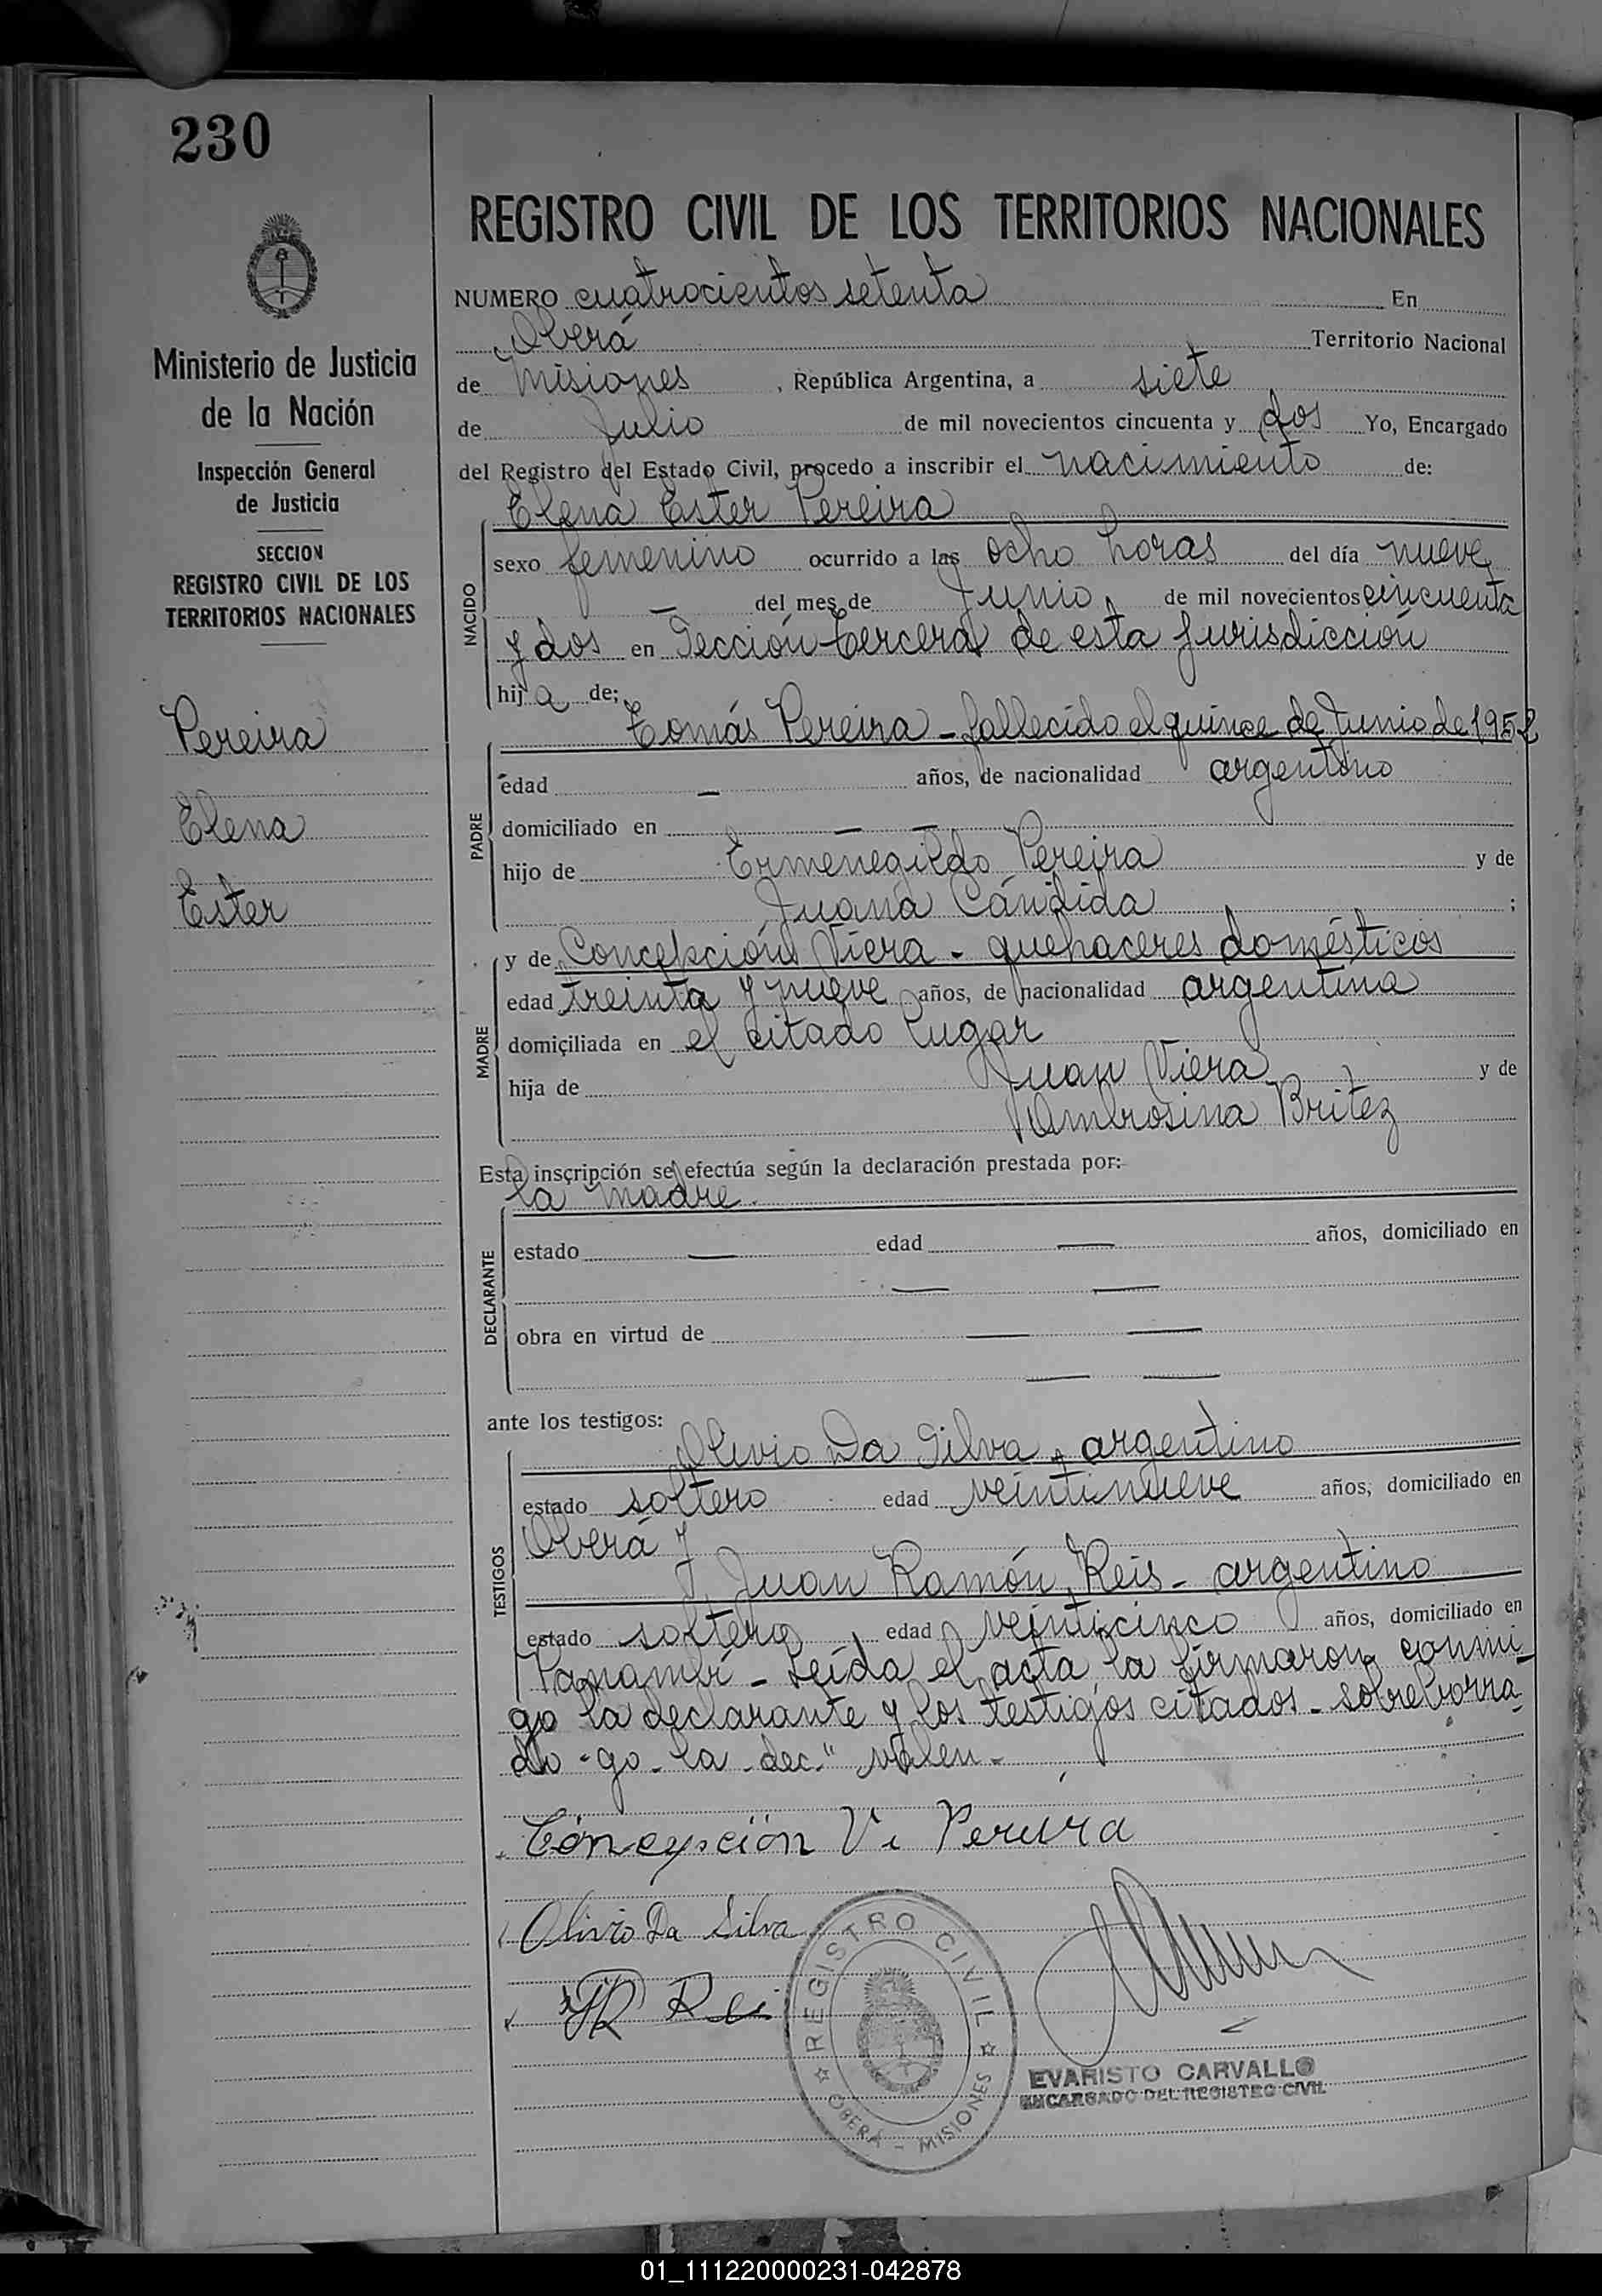 230
Ministerio de Justicia
de la Nación
Inspección General
de Justicia
SECCION
REGISTRO CIVIL DE LOS
TERRITORIOS NACIONALES
Pereira
Elena
Ester
REGISTRO CIVIL DE LOS TERRITORIOS NACIONALES
NUMERO cuatrocientos setenta En
Oberá Territorio Nacional
de Misiones , República Argentina, a siete
de Julio de mil novecientos cincuenta y dos Yo, Encargado
del Registro del Estado Civil, procedo a inscribir el nacimiento de:
Elena Ester Pereira
NACIDO
sexo femenino ocurrido a las ocho horas del día nueve
— del mes de Junio, de mil novecientos cincuenta
y dos en Sección tercera de esta jurisdicción
hija de:
Tomás Pereira - fallecido el quince de Junio de 1952
PADRE
edad — años, de nacionalidad argentino
domiciliado en — —
hijo de Ermenegildo Pereira y de
Juana Cándida ;
y de Concepción Viera - quehaceres domésticos
MADRE
edad treinta y nueve años, de nacionalidad argentina
domiciliada en el citado lugar
hija de Juan Viera y de
Ambrosina Britez
Esta inscripción se efectúa según la declaración prestada por:
la madre.
DECLARANTE
estado — edad — años, domiciliado en
— —
obra en virtud de — —
— —
ante los testigos:
Olivio Da Silva, argentino
TESTIGOS
estado soltero edad veintinueve años, domiciliado en
Oberá y
Juan Ramón Reis - argentino
estado soltero edad veinticinco años, domiciliado en
Panambí - Leída el acta la firmaron conmi-
go la declarante y los testigos citados - sobreborra-
do "go - la - dec." valen -
Concepción V. Pereira
Olivio Da Silva
JR Reis
REGISTRO CIVIL
OBERÁ - MISIONES
EVARISTO CARVALLO
ENCARGADO DEL REGISTRO CIVIL
01_111220000231-042878